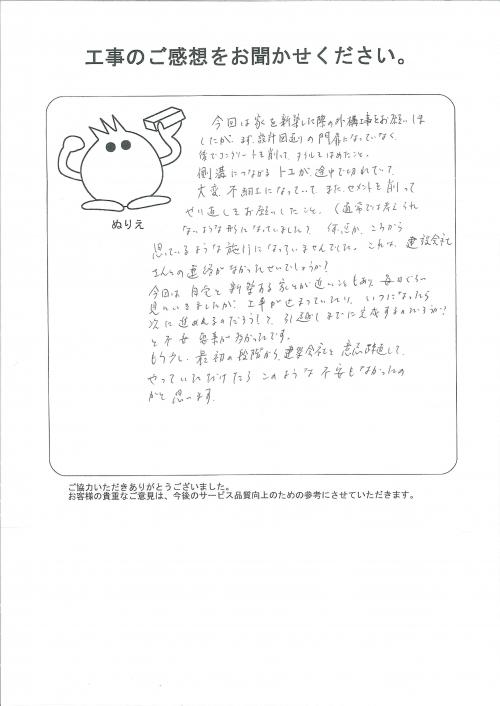 工事のご感想をお聞かせください。
今回は家を新築した際の外構工事をお願いしま
したが、まず、設計図通りの門扉になっていなく、
後でコンクリートを削って、
側溝につながるトユが、途中で切れていて、
大変、不細工になっていて、また、セメントを削って
やり直しをお願いしたこと。(通常では考えられ
ないような形になっていました)
ぬりえ
思っているような施行になっていませんでした。これは、建設会社
さんとの連絡がなかったせいでしょうか?
今回は、自宅と新築する家とが近いこともあり、毎日ぐらい
見にいきましたが、工事が止まっていたり、いつになったら
次に進めるのだろうか?、引越しまでに完成するのだろうか?
と不安要素が多かったです。
もう少し、最初の段階から、建築会社と意思疎通して、
やっていただけたら、このような不安もなかったの
かと思います。
ご協力いただきありがとうございました。
お客様の貴重なご意見は、今後のサービス品質向上のための参考にさせていただきます。